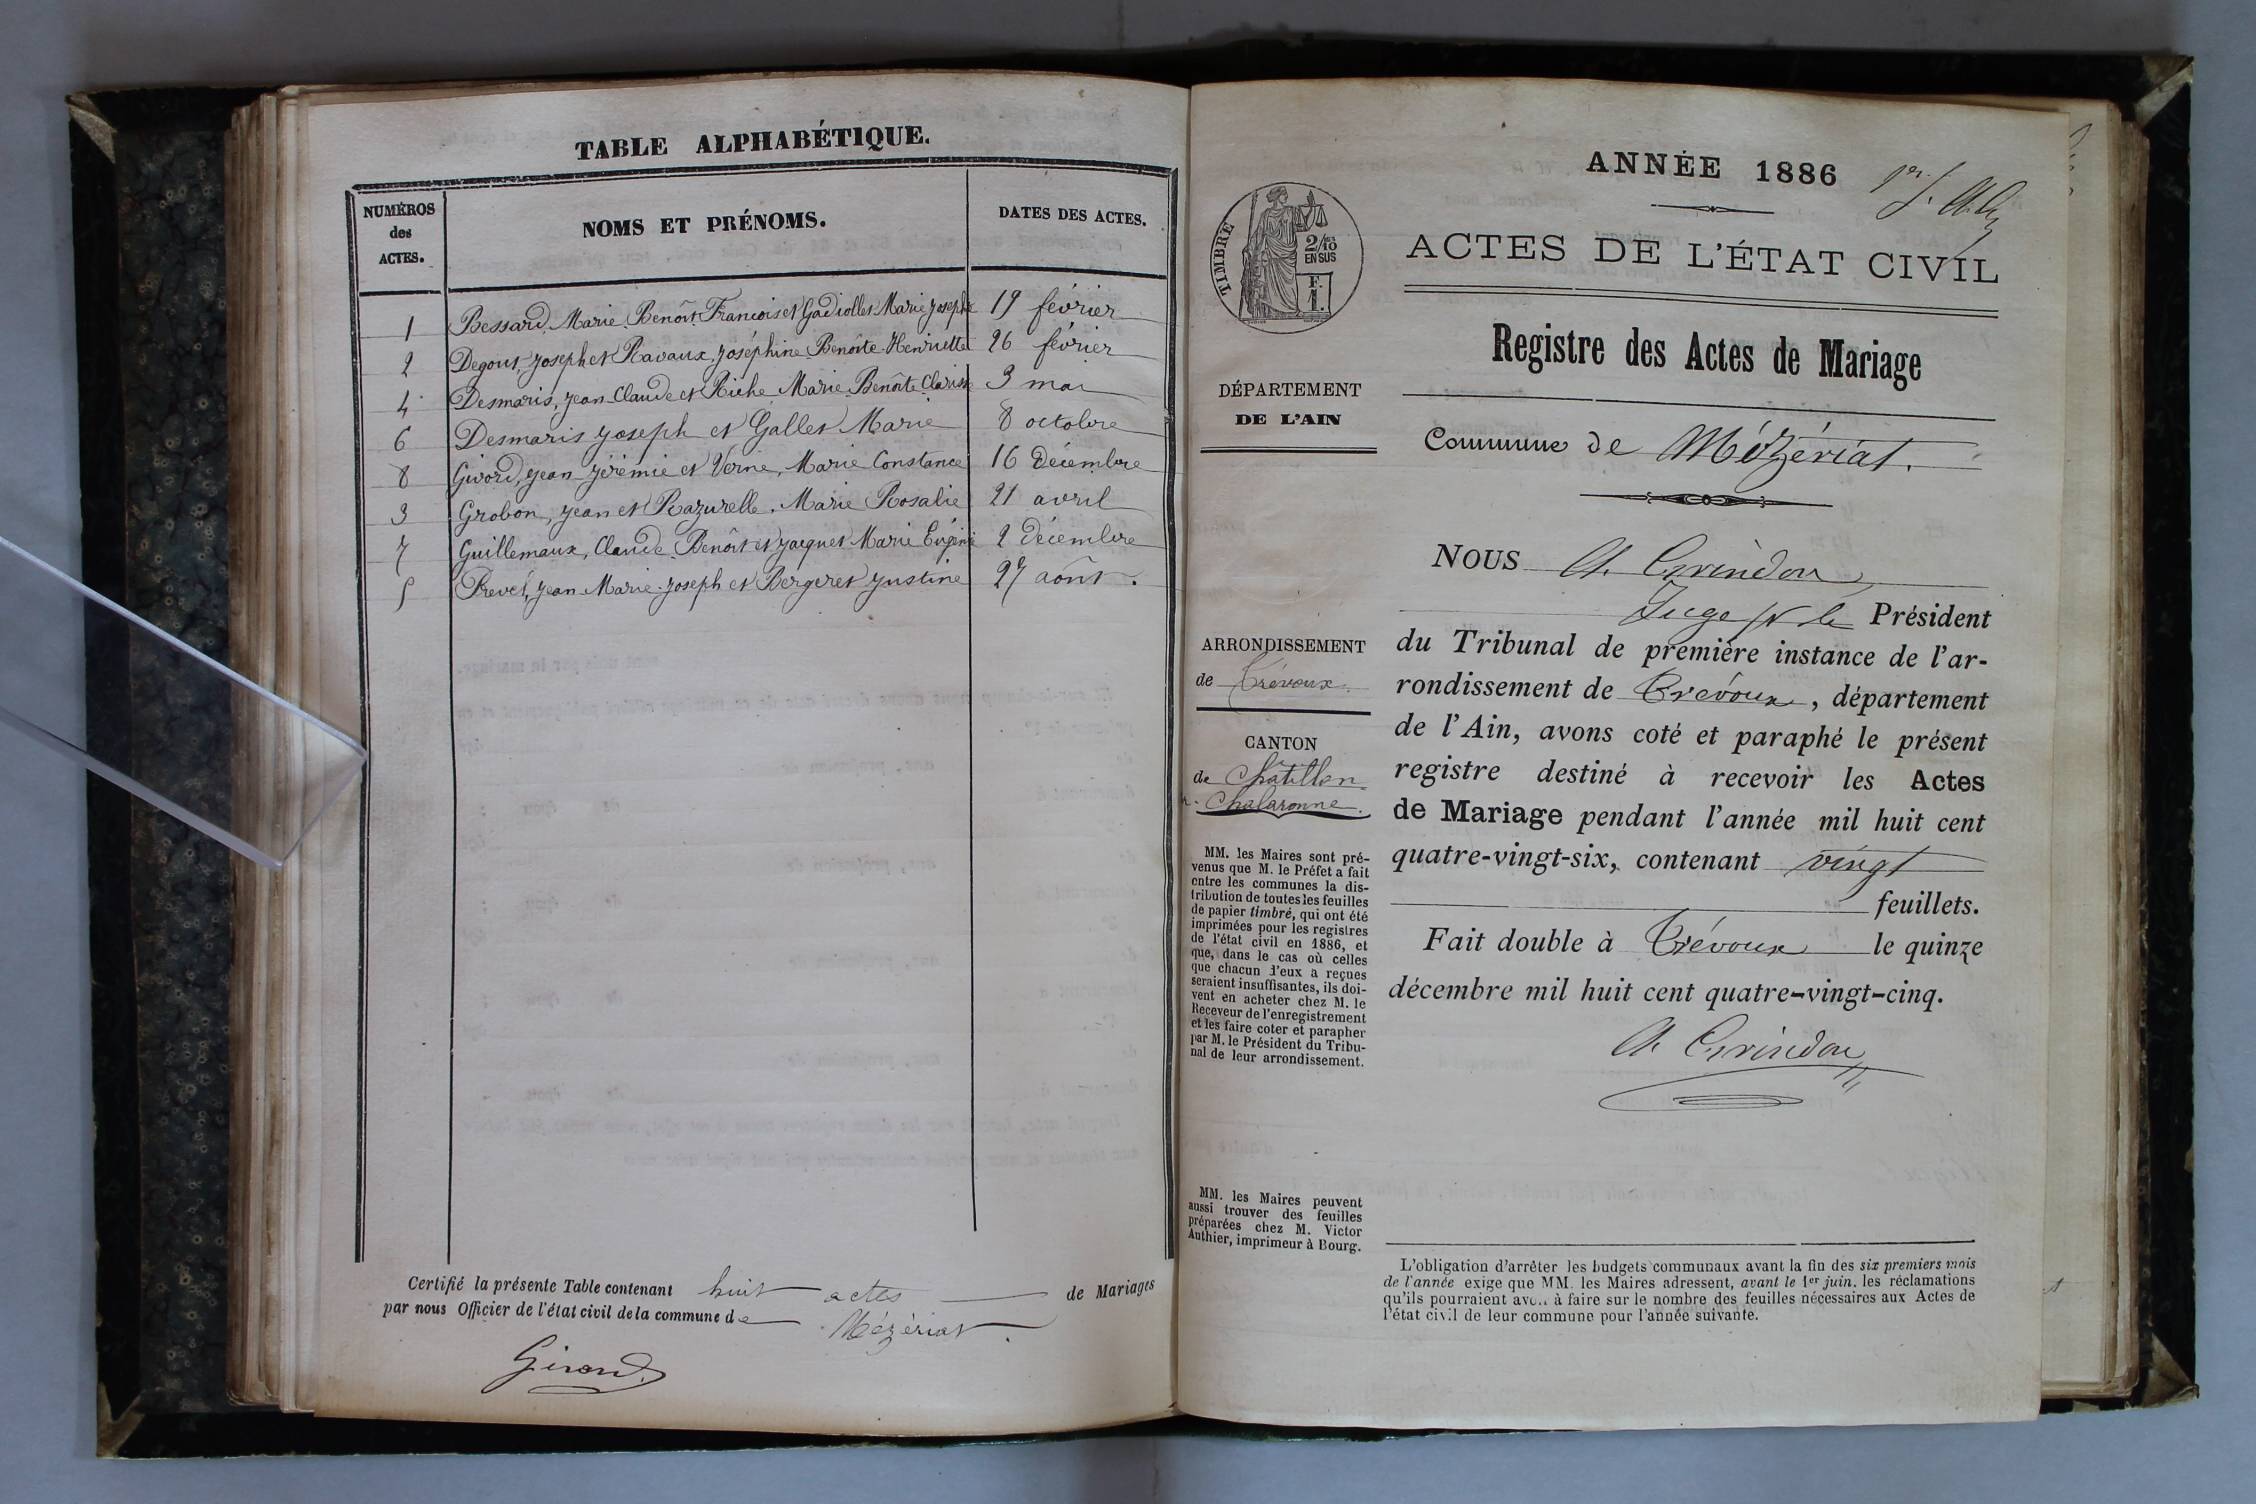 TABLE ALPHABÉTIQUE.
NUMÉROS
des
ACTES.
NOMS ET PRÉNOMS.
DATES DES ACTES.
1 Bessard, Marie Benoît François et Gadiollet Marie Josephe 19 février
2 Degout, Joseph et Ravaux, Joséphine Benoîte Henriette 26 février
4 Desmaris, Jean Claude et Riche Marie Benoîte Clarisse 3 mai
6 Desmaris Joseph et Gallet Marie 8 octobre
8 Givord, Jean Jérémie et Verne, Marie Constance 16 Décembre
3 Grobon, Jean et Razurelle, Marie Rosalie 21 avril
7 Guillemaux, Claude Benoît et Jacquet Marie Eugénie 2 Décembre
5 Prevel, Jean Marie Joseph et Bergeret Justine 27 août.
Certifié la présente Table contenant huit actes de Mariages
par nous Officier de l'état civil de la commune de Mézériat.
Girard
ANNÉE 1886
1er
TIMBRE
2/10
EN SUS
F.
1.
ACTES DE L'ÉTAT CIVIL
Registre des Actes de Mariage
DÉPARTEMENT
DE L'AIN
Commune de Mézériat.
NOUS
Juge pr le Président
du Tribunal de première instance de l'ar-
rondissement de Trévoux, département
de l'Ain, avons coté et paraphé le présent
registre destiné à recevoir les Actes
de Mariage pendant l'année mil huit cent
quatre-vingt-six, contenant vingt
feuillets.
Fait double à Trévoux le quinze
décembre mil huit cent quatre-vingt-cinq.
ARRONDISSEMENT
de Trévoux.
CANTON
de Châtillon
s. Chalaronne.
MM. les Maires sont pré-
venus que M. le Préfet a fait
entre les communes la dis-
tribution de toutes les feuilles
de papier timbré, qui ont été
imprimées pour les registres
de l'état civil en 1886, et
que, dans le cas où celles
que chacun d'eux a reçues
seraient insuffisantes, ils doi-
vent en acheter chez M. le
Receveur de l'enregistrement
et les faire coter et parapher
par M. le Président du Tribu-
nal de leur arrondissement.
MM. les Maires peuvent
aussi trouver des feuilles
préparées chez M. Victor
Authier, imprimeur à Bourg.
L'obligation d'arrêter les budgets communaux avant la fin des six premiers mois
de l'année exige que MM. les Maires adressent, avant le 1er juin, les réclamations
qu'ils pourraient avoir à faire sur le nombre des feuilles nécessaires aux Actes de
l'état civil de leur commune pour l'année suivante.